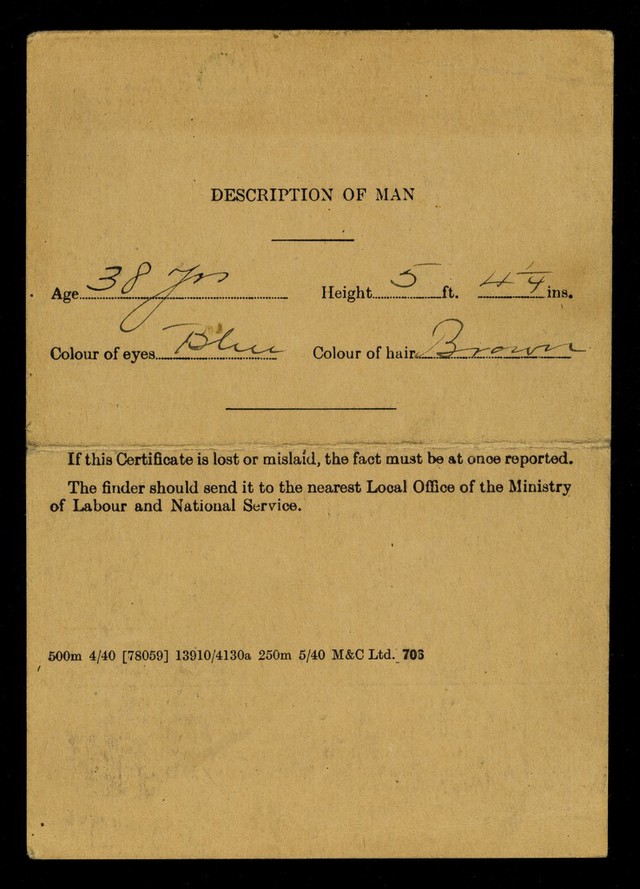 DESCRIPTION OF MAN
Age 38 Yrs Height 5 ft. 4 1/4 ins.
Colour of eyes Blue Colour of hair Brown
If this Certificate is lost or mislaid, the fact must be at once reported.
The finder should send it to the nearest Local Office of the Ministry
of Labour and National Service.
500m 4/40 [78059] 13910/4130a 250m 5/40 M&C Ltd. 703